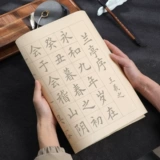 兰亭序
王羲之
永和九年岁在
癸丑暮春之初
会于会稽山阴